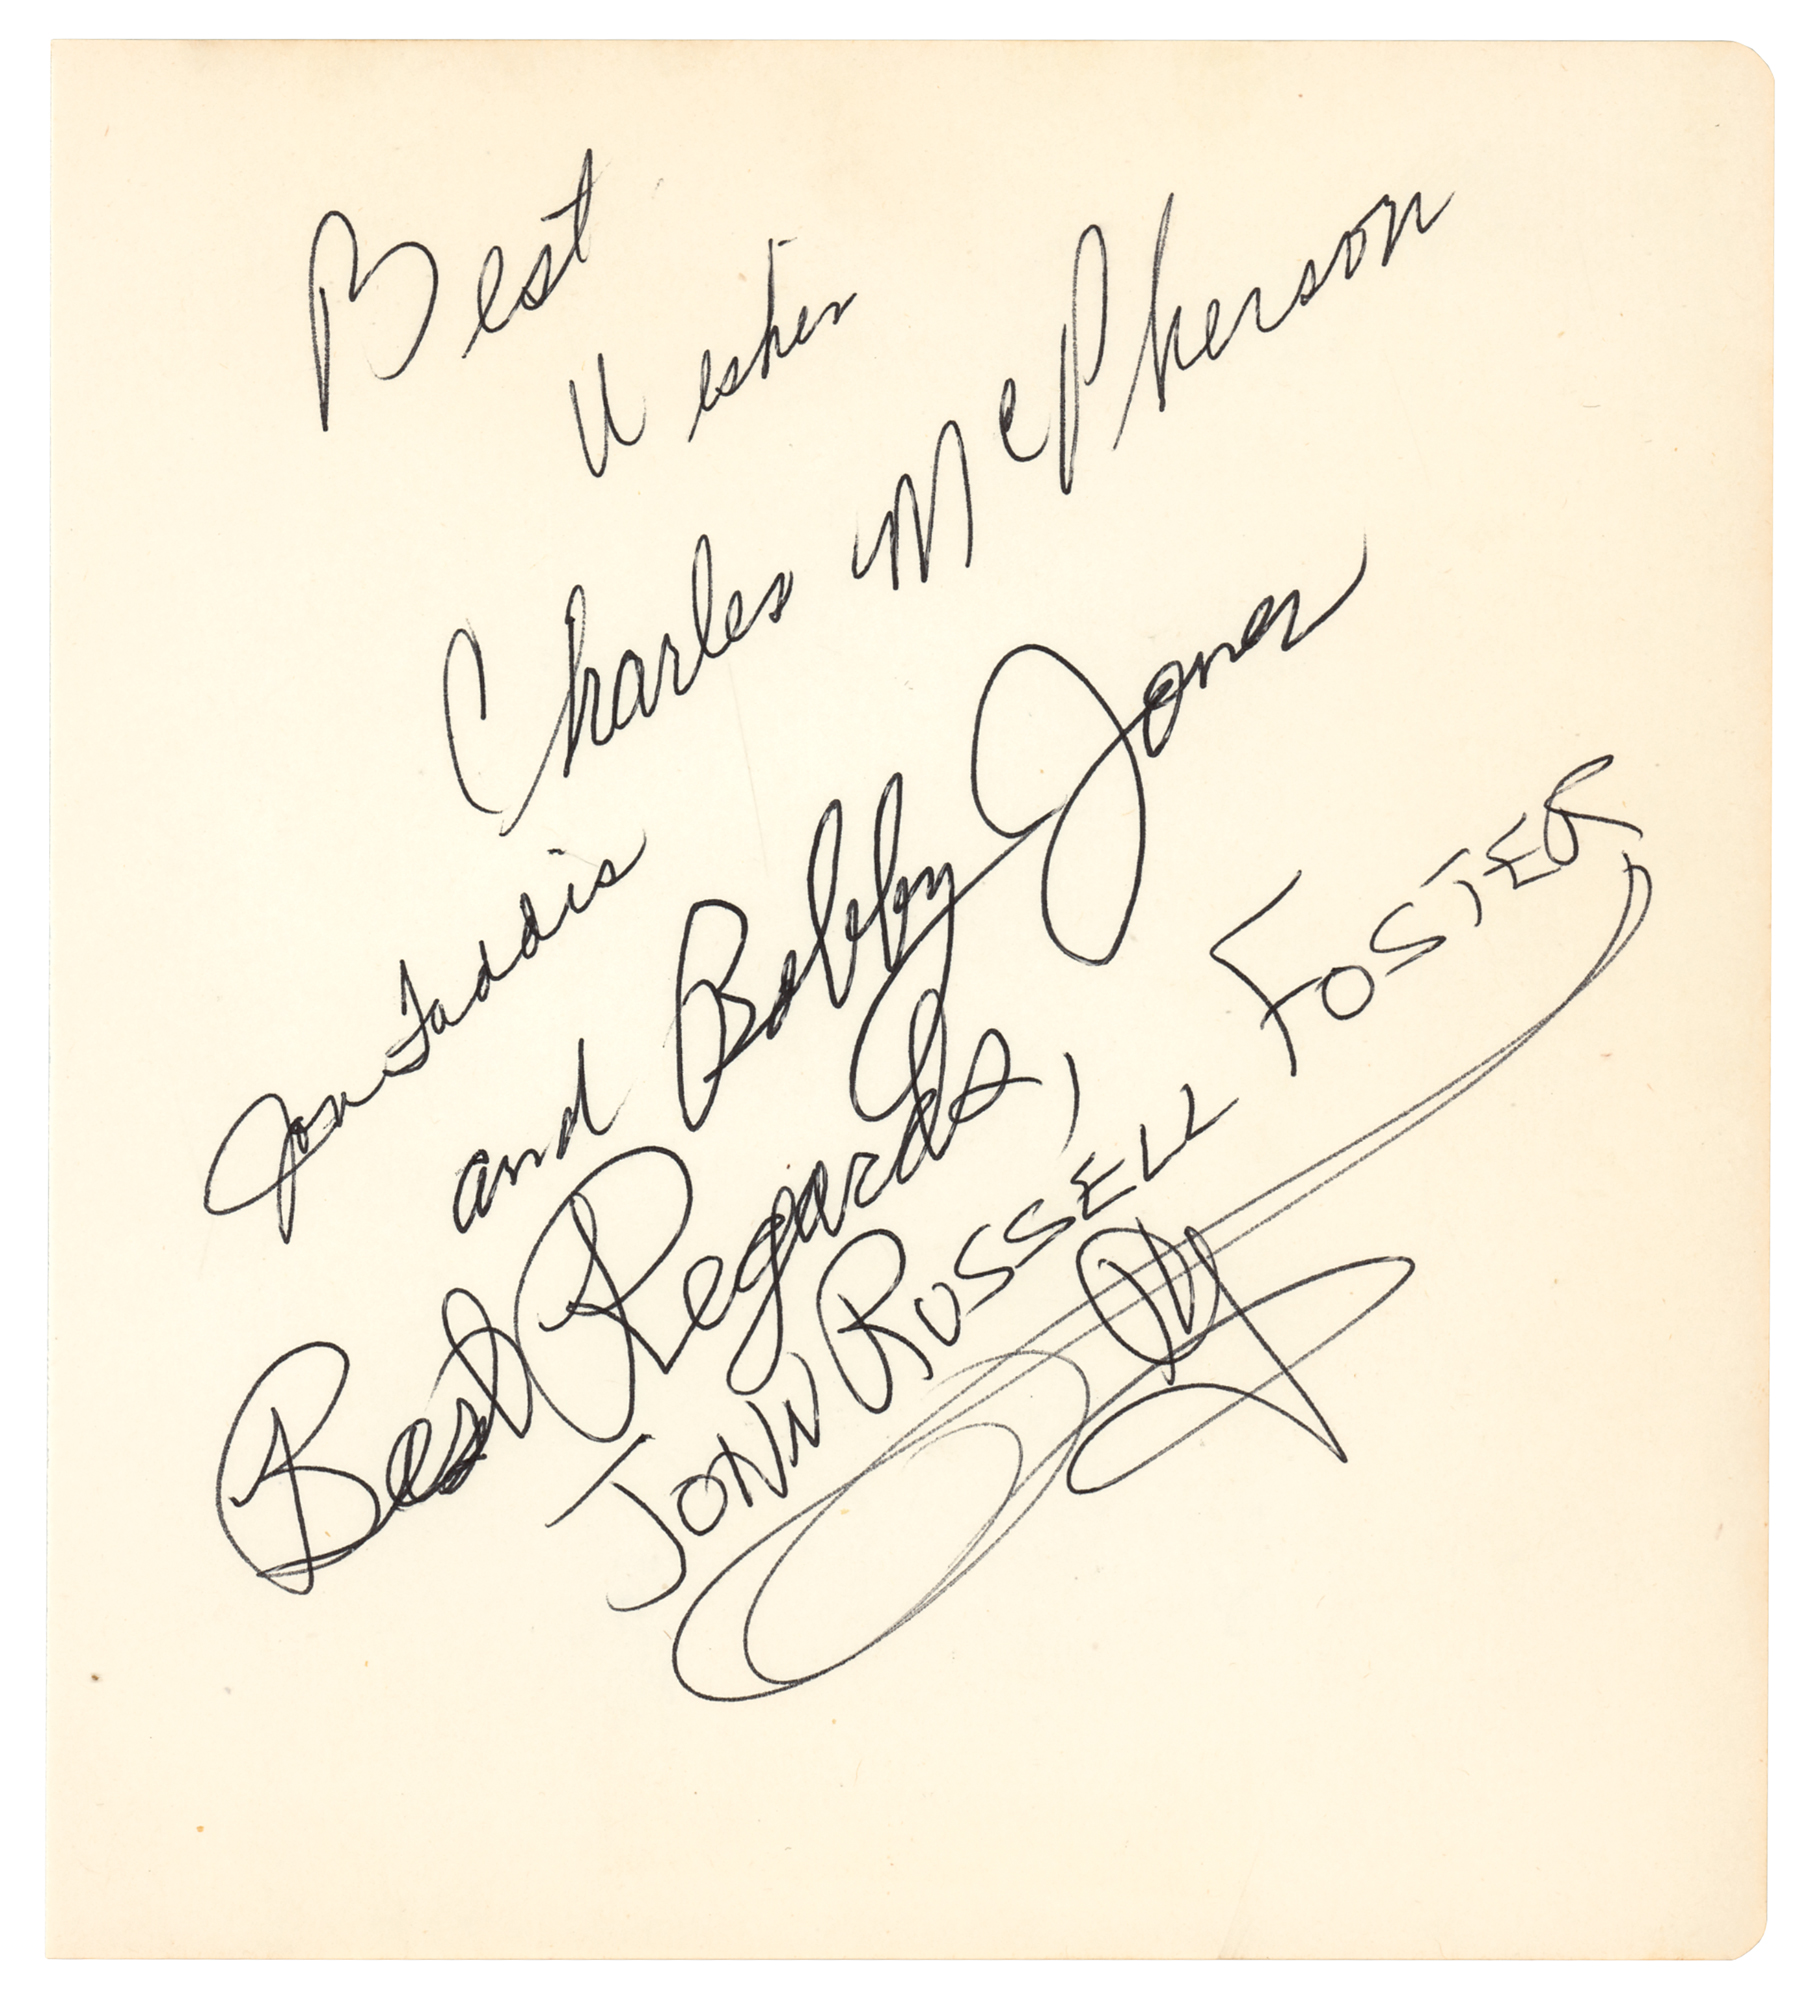 Best
Wishes
Charles McPherson
Jon Faddis
and Bobby Jones
Best Regards,
JOHN RUSSELL FOSTER